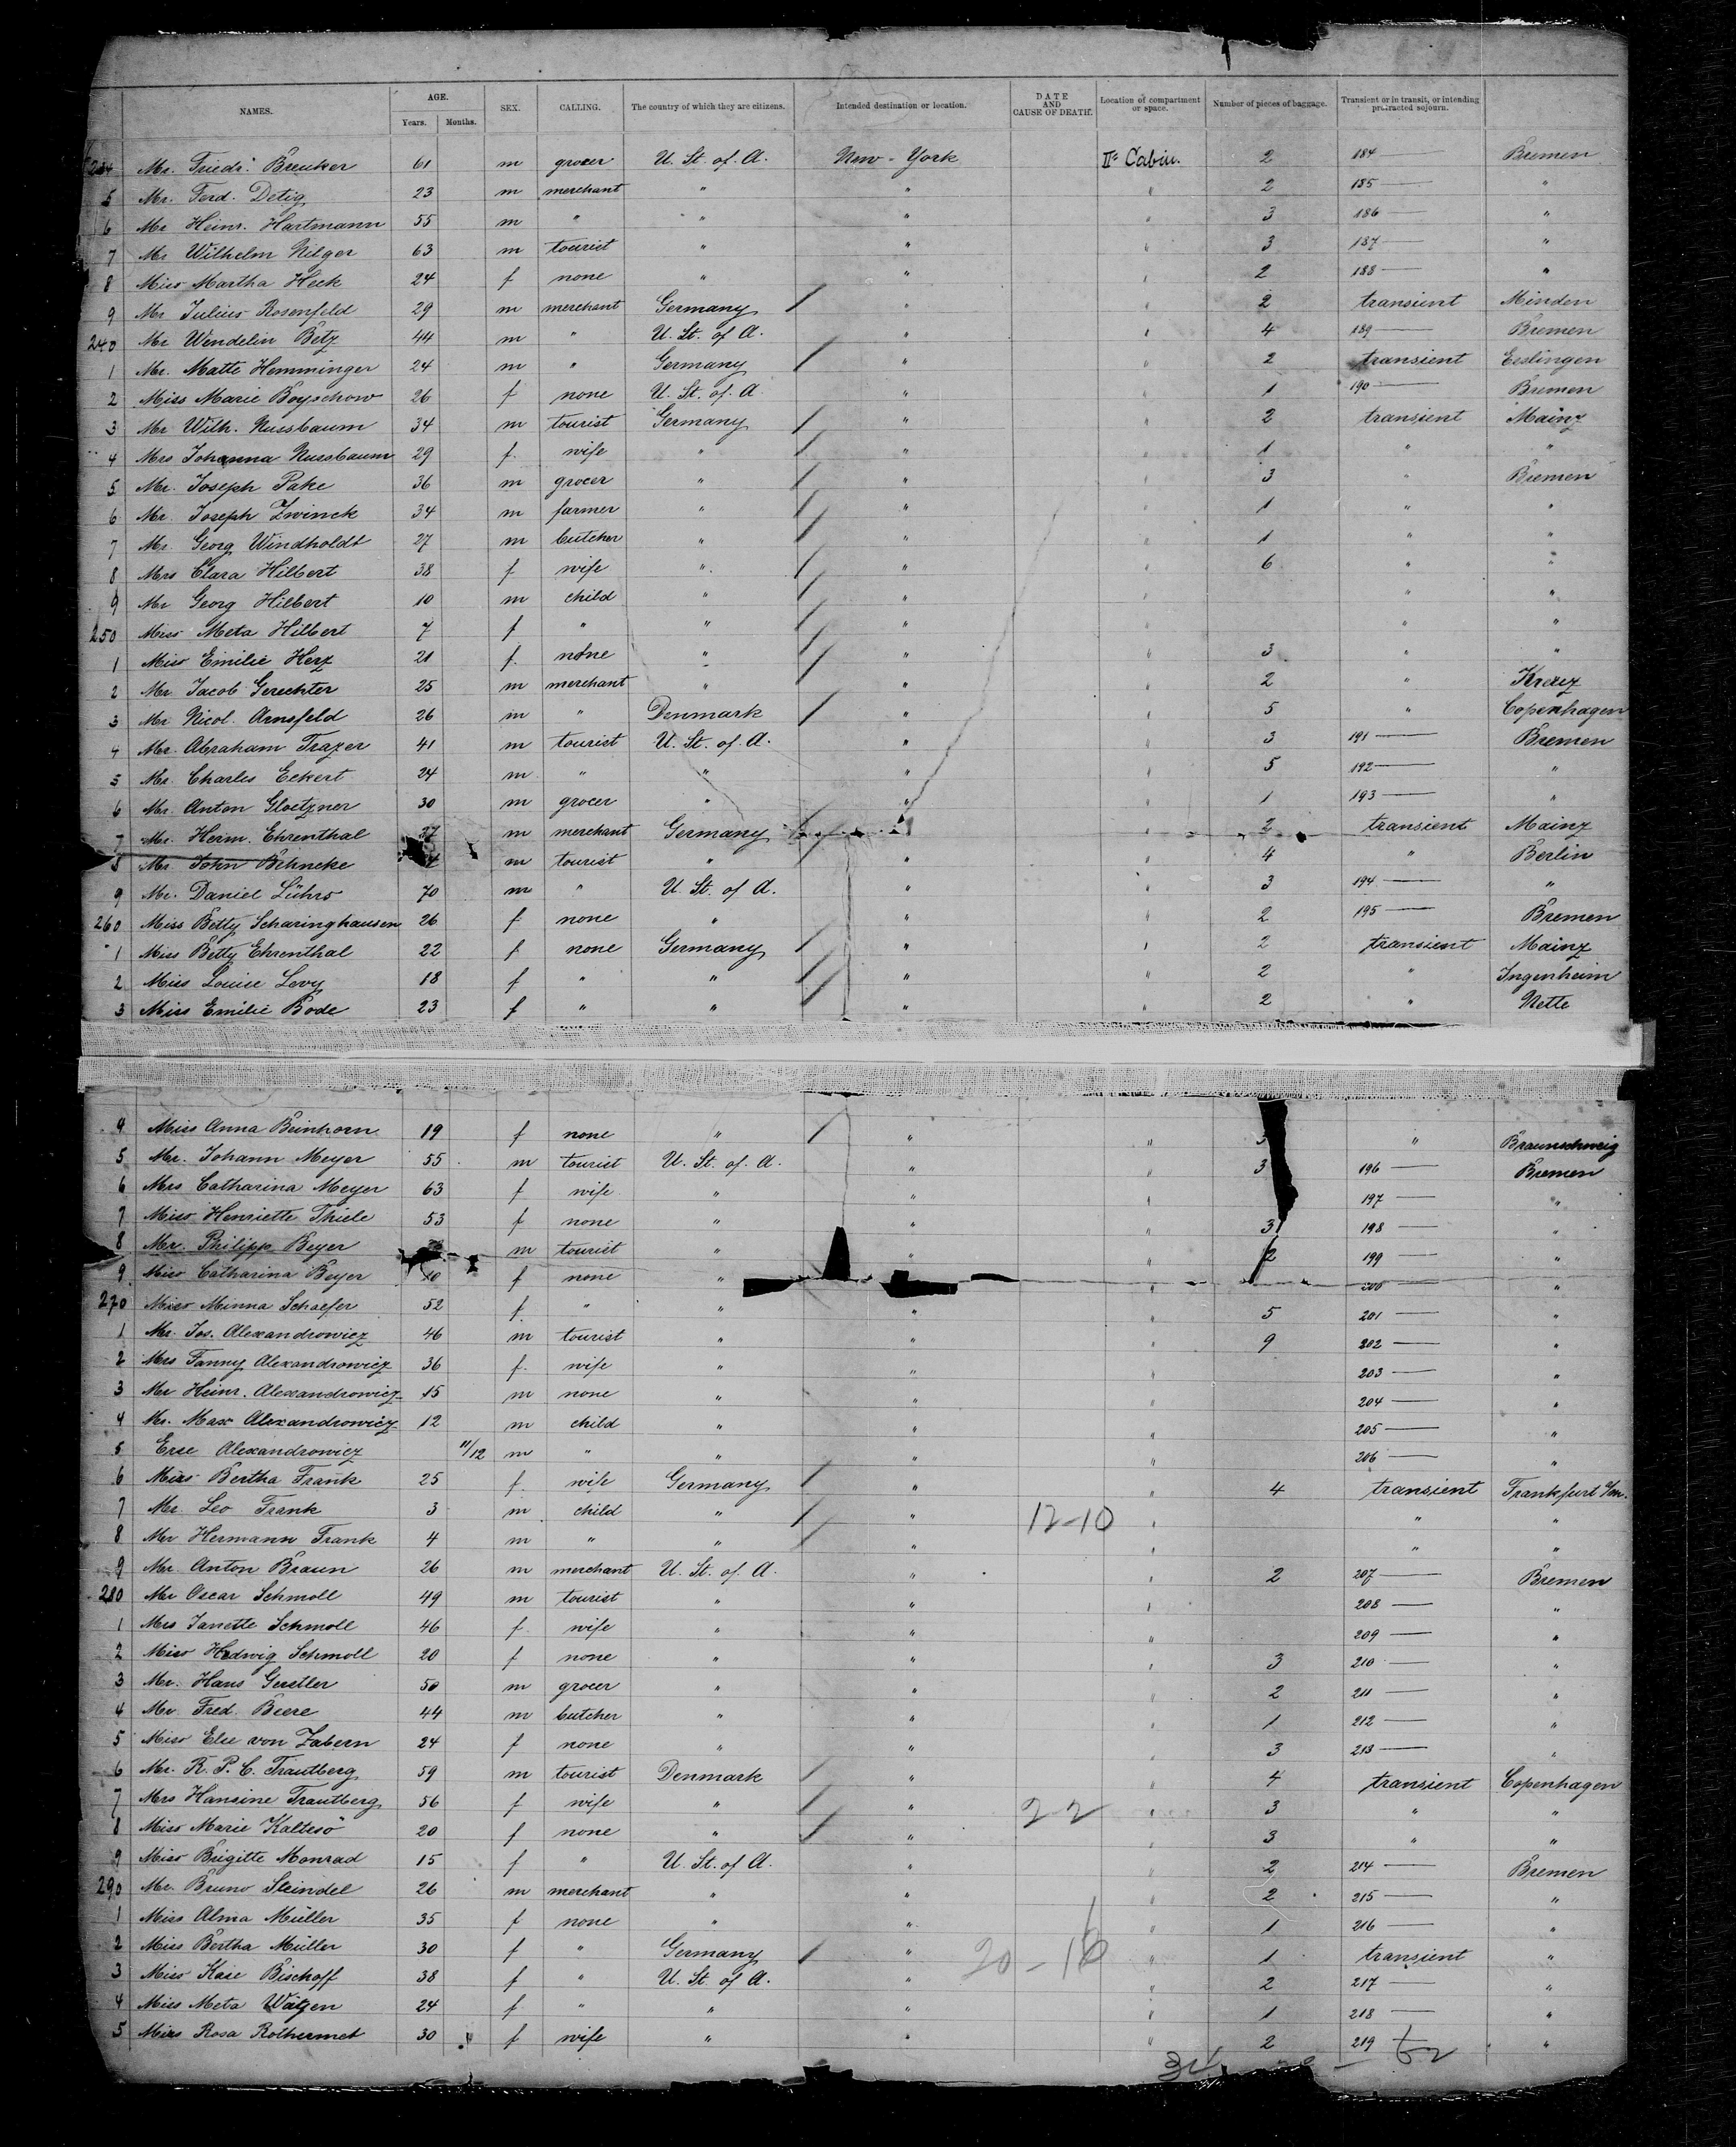 NAMES. AGE. Years. Months. SEX. CALLING. The country of which they are citizens. Intended destination or location. DATE AND CAUSE OF DEATH. Location of compartment or space. Number of pieces of baggage. Transient or in transit, or intending protracted sojourn.
234 Mr. Friedr. Breuker 61 m grocer U. St. of. A. New-York II Cabin. 2 184 — Bremen
5 Mr. Ferd. Detig 23 m merchant " " " 2 185 — "
6 Mr Heinr. Hartmann 55 m " " " " 3 186 — "
7 Mr Wilhelm Nilger 63 m tourist " " " 3 187 — "
8 Miss Martha Heck 24 f none " " " 2 188 — "
9 Mr Julius Rosenfeld 29 m merchant Germany / " " 2 transient Minden
240 Mr Wendelin Betz 44 m " U. St. of A. " " 4 189 — Bremen
1 Mr. Matte Hemminger 24 m " Germany / " " 2 transient Esslingen
2 Miss Marie Boyschow 26 f none U. St. of A " " 1 190 — Bremen
3 Mr Wilh. Nussbaum 34 m tourist Germany / " " 2 transient Mainz
4 Mrs Johanna Nussbaum 29 f. wife " / " " 1 " "
5 Mr. Joseph Pake 36 m grocer " / " " 3 " Bremen
6 Mr. Joseph Zwinck 34 m farmer " / " " 1 " "
7 Mr. Georg Windholdt 27 m butcher " / " " 1 " "
8 Mrs Clara Hilbert 38 f wife " / " " 6 " "
9 Mr Georg Hilbert 10 m child " / " " " "
250 Miss Meta Hilbert 7 f " " / " " " "
1 Miss Emilie Herz 21 f. none " / " " 3 " "
2 Mr Jacob Gerechter 25 m merchant " / " " 2 " Kreuz
3 Mr Nicol. Arnsfeld 26 m " Denmark / " " 5 " Copenhagen
4 Mr. Abraham Frazer 41 m tourist U. St. of. A. " " 3 191 — Bremen
5 Mr. Charles Eckert 24 m " " " " 5 192 — "
6 Mr. Anton Gloetzner 30 m grocer " " " 1 193 — "
7 Mr. Herm. Ehrenthal 37 m merchant Germany / " " 2 transient Mainz
8 Mr John Behncke m tourist " / " " 4 " Berlin
9 Mr. Daniel Lührs 70 m " U. St. of A. " " 3 194 — "
260 Miss Betty Scharinghausen 26 f none " " " 2 195 — Bremen
1 Miss Betty Ehrenthal 22 f none Germany / " " 2 transient Mainz
2 Miss Louise Levy 18 f " " / " " 2 " Ingenheim
3 Miss Emilie Bode 23 f " " / " " 2 " Nette
4 Miss Anna Beinhorn 19 f none " / " " 3 " Braunschweig
5 Mr. Johann Meyer 55 m tourist U. St. of. A. " " 3 196 — Bremen
6 Mrs Catharina Meyer 63 f wife " " " 197 — "
7 Miss Henriette Thiele 53 f none " " " 3 198 — "
8 Mr. Philipp Beyer m tourist " " " 2 199 — "
9 Miss Catharina Beyer f none " " 200 — "
270 Miss Minna Schaefer 52 f. " " " " 5 201 — "
1 Mr. Jos. Alexandrowicz 46 m tourist " " " 9 202 — "
2 Mrs Fanny Alexandrowicz 36 f. wife " " " 203 — "
3 Mr Heinr. Alexandrowicz 15 m none " " " 204 — "
4 Mr. Max Alexandrowicz 12 m child " " " 205 — "
5 Erse Alexandrowicz 11/12 m " " " " 206 — "
6 Miss Bertha Frank 25 f. wife Germany / " " 4 transient Frankfurt a/m.
7 Mr. Leo Frank 3 m child " / " 12-10 " " "
8 Mr Hermann Frank 4 m " " / " " " "
9 Mr. Anton Braun 26 m merchant U. St. of. A. " " 2 207 — Bremen
280 Mr Oscar Schmoll 49 m tourist " " " 208 — "
1 Mrs Janette Schmoll 46 f wife " " " 209 — "
2 Miss Hedwig Schmoll 20 f none " " " 3 210 — "
3 Mr. Hans Gerstler 50 m grocer " " " 2 211 — "
4 Mr Fred. Beere 44 m butcher " " " 1 212 — "
5 Miss Else von Zabern 24 f none " " " 3 213 — "
6 Mr. R. P. C. Trautberg 59 m tourist Denmark / " " 4 transient Copenhagen
7 Mrs Hansine Trautberg 56 f wife " / " 2-2 " 3 " "
8 Miss Marie Kaltesö 20 f none " / " " 3 " "
9 Miss Brigitte Monrad 15 f " U. St. of A. " " 2 214 — Bremen
290 Mr. Bruno Steindel 26 m merchant " " " 2 215 — "
1 Miss Alma Müller 35 f none " " " 1 216 — "
2 Miss Bertha Müller 30 f " Germany / " 20-16 " 1 transient "
3 Miss Käse Bischoff 38 f " U. St of A. " " 2 217 — "
4 Miss Meta Wätzen 24 f " " " " 1 218 — "
5 Miss Rosa Rothermet 30 f wife " " " 2 219 — "